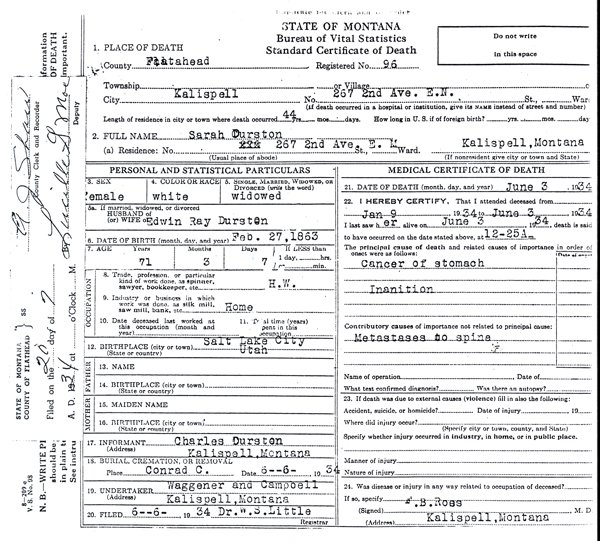 STATE OF MONTANA
Bureau of Vital Statistics
Standard Certificate of Death
Do not write
in this space
1. PLACE OF DEATH
County Flathead Registered No. 96
Township or Village
City Kalispell No. 267 2nd Ave. E.N. St., War
(If death occurred in a hospital or institution, give its NAME instead of street and number)
Length of residence in city or town where death occurred 44 yrs. mos. days. How long in U. S. if of foreign birth? yrs. mos. day
2. FULL NAME Sarah Durston
(a) Residence: No. 267 2nd Ave. E. M St., Ward. Kalispell, Montana
(Usual place of abode) (If nonresident give city or town and State)
PERSONAL AND STATISTICAL PARTICULARS
3. SEX 4. COLOR OR RACE 5. SINGLE, MARRIED, WIDOWED, OR
DIVORCED (write the word)
emale white widowed
5a. If married, widowed, or divorced
HUSBAND of
(or) WIFE of Edwin Ray Durston
6. DATE OF BIRTH (month, day, and year) Feb. 27, 1863
7. AGE Years Months Days If LESS than
71 3 7 1 day, hrs.
or min.
OCCUPATION
8. Trade, profession, or particular
kind of work done, as spinner,
sawyer, bookkeeper, etc. H.W.
9. Industry or business in which
work was done, as silk mill,
saw mill, bank, etc. Home
10. Date deceased last worked at
this occupation (month and
year)
11. T al time (years)
pent in this
occupation
12. BIRTHPLACE (city or town) Salt Lake City
(State or country) Utah
FATHER
13. NAME
14. BIRTHPLACE (city or town)
(State or country)
MOTHER
15. MAIDEN NAME
16. BIRTHPLACE (city or town)
(State or country)
17. INFORMANT Charles Durston
(Address) Kalispell, Montana
18. BURIAL, CREMATION, OR REMOVAL
Place Conrad C. Date 6--6- , 1934
19. UNDERTAKER Waggener and Campbell
(Address) Kalispell, Montana
20. FILED 6--6- , 1934 Dr. W.S. Little
Registrar
MEDICAL CERTIFICATE OF DEATH
21. DATE OF DEATH (month, day, and year) June 3 , 1934
22. I HEREBY CERTIFY, That I attended deceased from
Jan 9 , 1934 to June 3 , 1934
I last saw h er alive on June 3 , 1934 death is said
to have occurred on the date stated above, at 12-25A m.
The principal cause of death and related causes of importance in order of
onset were as follows:
Cancer of stomach
Inanition
Contributory causes of importance not related to principal cause:
Metastases to spine
Name of operation Date of
What test confirmed diagnosis? Was there an autopsy?
23. If death was due to external causes (violence) fill in also the following:
Accident, suicide, or homicide? Date of injury , 19
Where did injury occur?
(Specify city or town, county, and State)
Specify whether injury occurred in industry, in home, or in public place.
Manner of injury
Nature of injury
24. Was disease or injury in any way related to occupation of deceased?
If so, specify
(Signed) .B.Ross M. D
(Address) Kalispell, Montana
formation
OF DEATH
important.
County Clerk and Recorder
Deputy
STATE OF MONTANA } ss
COUNTY OF FLATHEAD
Filed on the 20 day of
A. D. 1934 at o'Clock M.
N. B.—WRITE Pl
should be
in plain t
See instru
8-209 e
V. S. No. 98